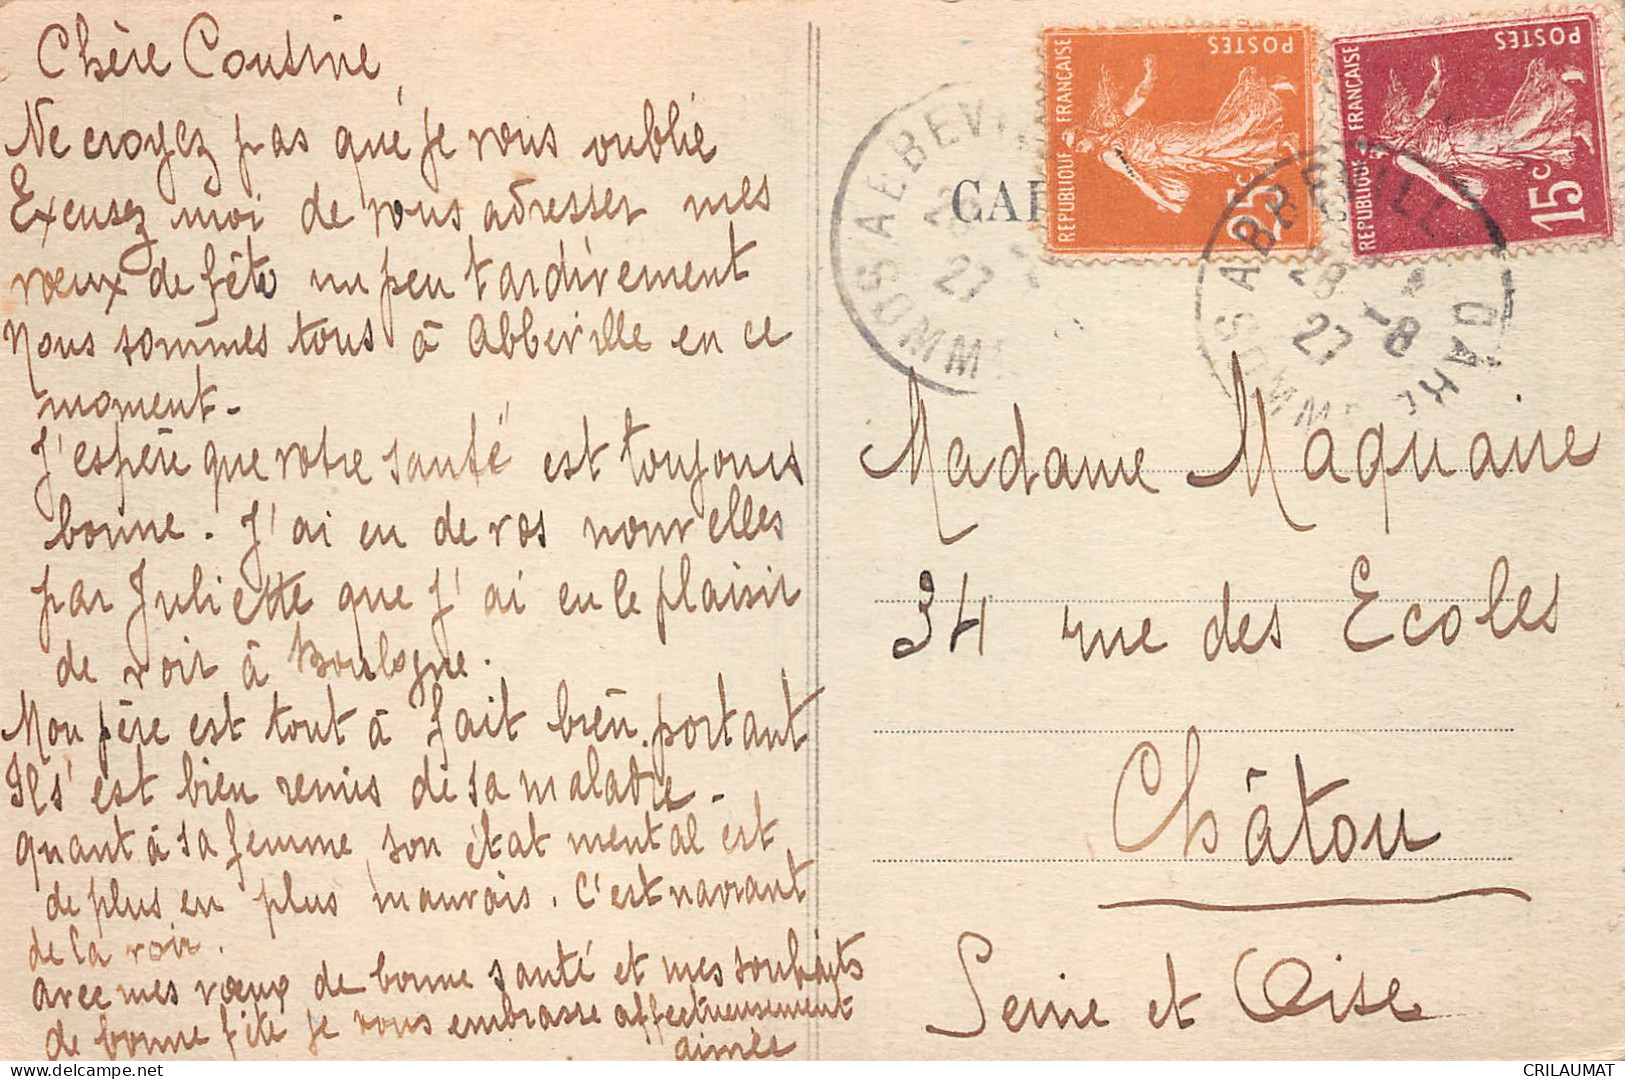 Chère Cousine,
Ne croyez pas que je vous oublie
Excusez moi de vous adresser mes
vœux de fête un peu tardivement
Nous sommes tous à Abbeville en ce
moment -
J'espère que votre santé est toujours
bonne. J'ai eu de vos nouvelles
par Juliette que j'ai eu le plaisir
de voir à Boulogne.
Mon père est tout à fait bien portant
Il s'est bien remis de sa maladie -
quant à sa femme, son état mental est
de plus en plus mauvais. C'est navrant
de la voir.
avec mes vœux de bonne santé et mes souhaits
de bonne fête je vous embrasse affectueusement
aimée
CAR
REPUBLIQUE FRANÇAISE
POSTES
25c
REPUBLIQUE FRANÇAISE
POSTES
15c
ABBEVI
SOMME
28
27
ABBEVILLE
SOMME
28 -8
27
Madame Maquaire
34 rue des Ecoles
Châtou
Seine et Oise
CRILAUMAT